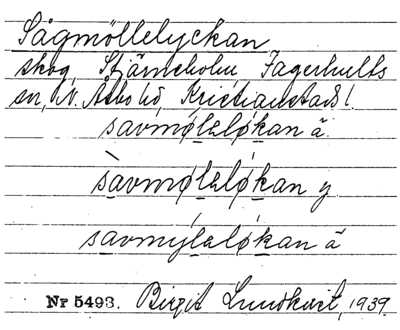 Sågmöllelyckan
skog, Stjärneholm Fagerhults
sn, N. Åsbo hd, Kristianstads l.
savmøleløkan ä
sàvmøləløkan y
savmyləløkan ä
Nr 5493. Birgit Lundkvist, 1939.